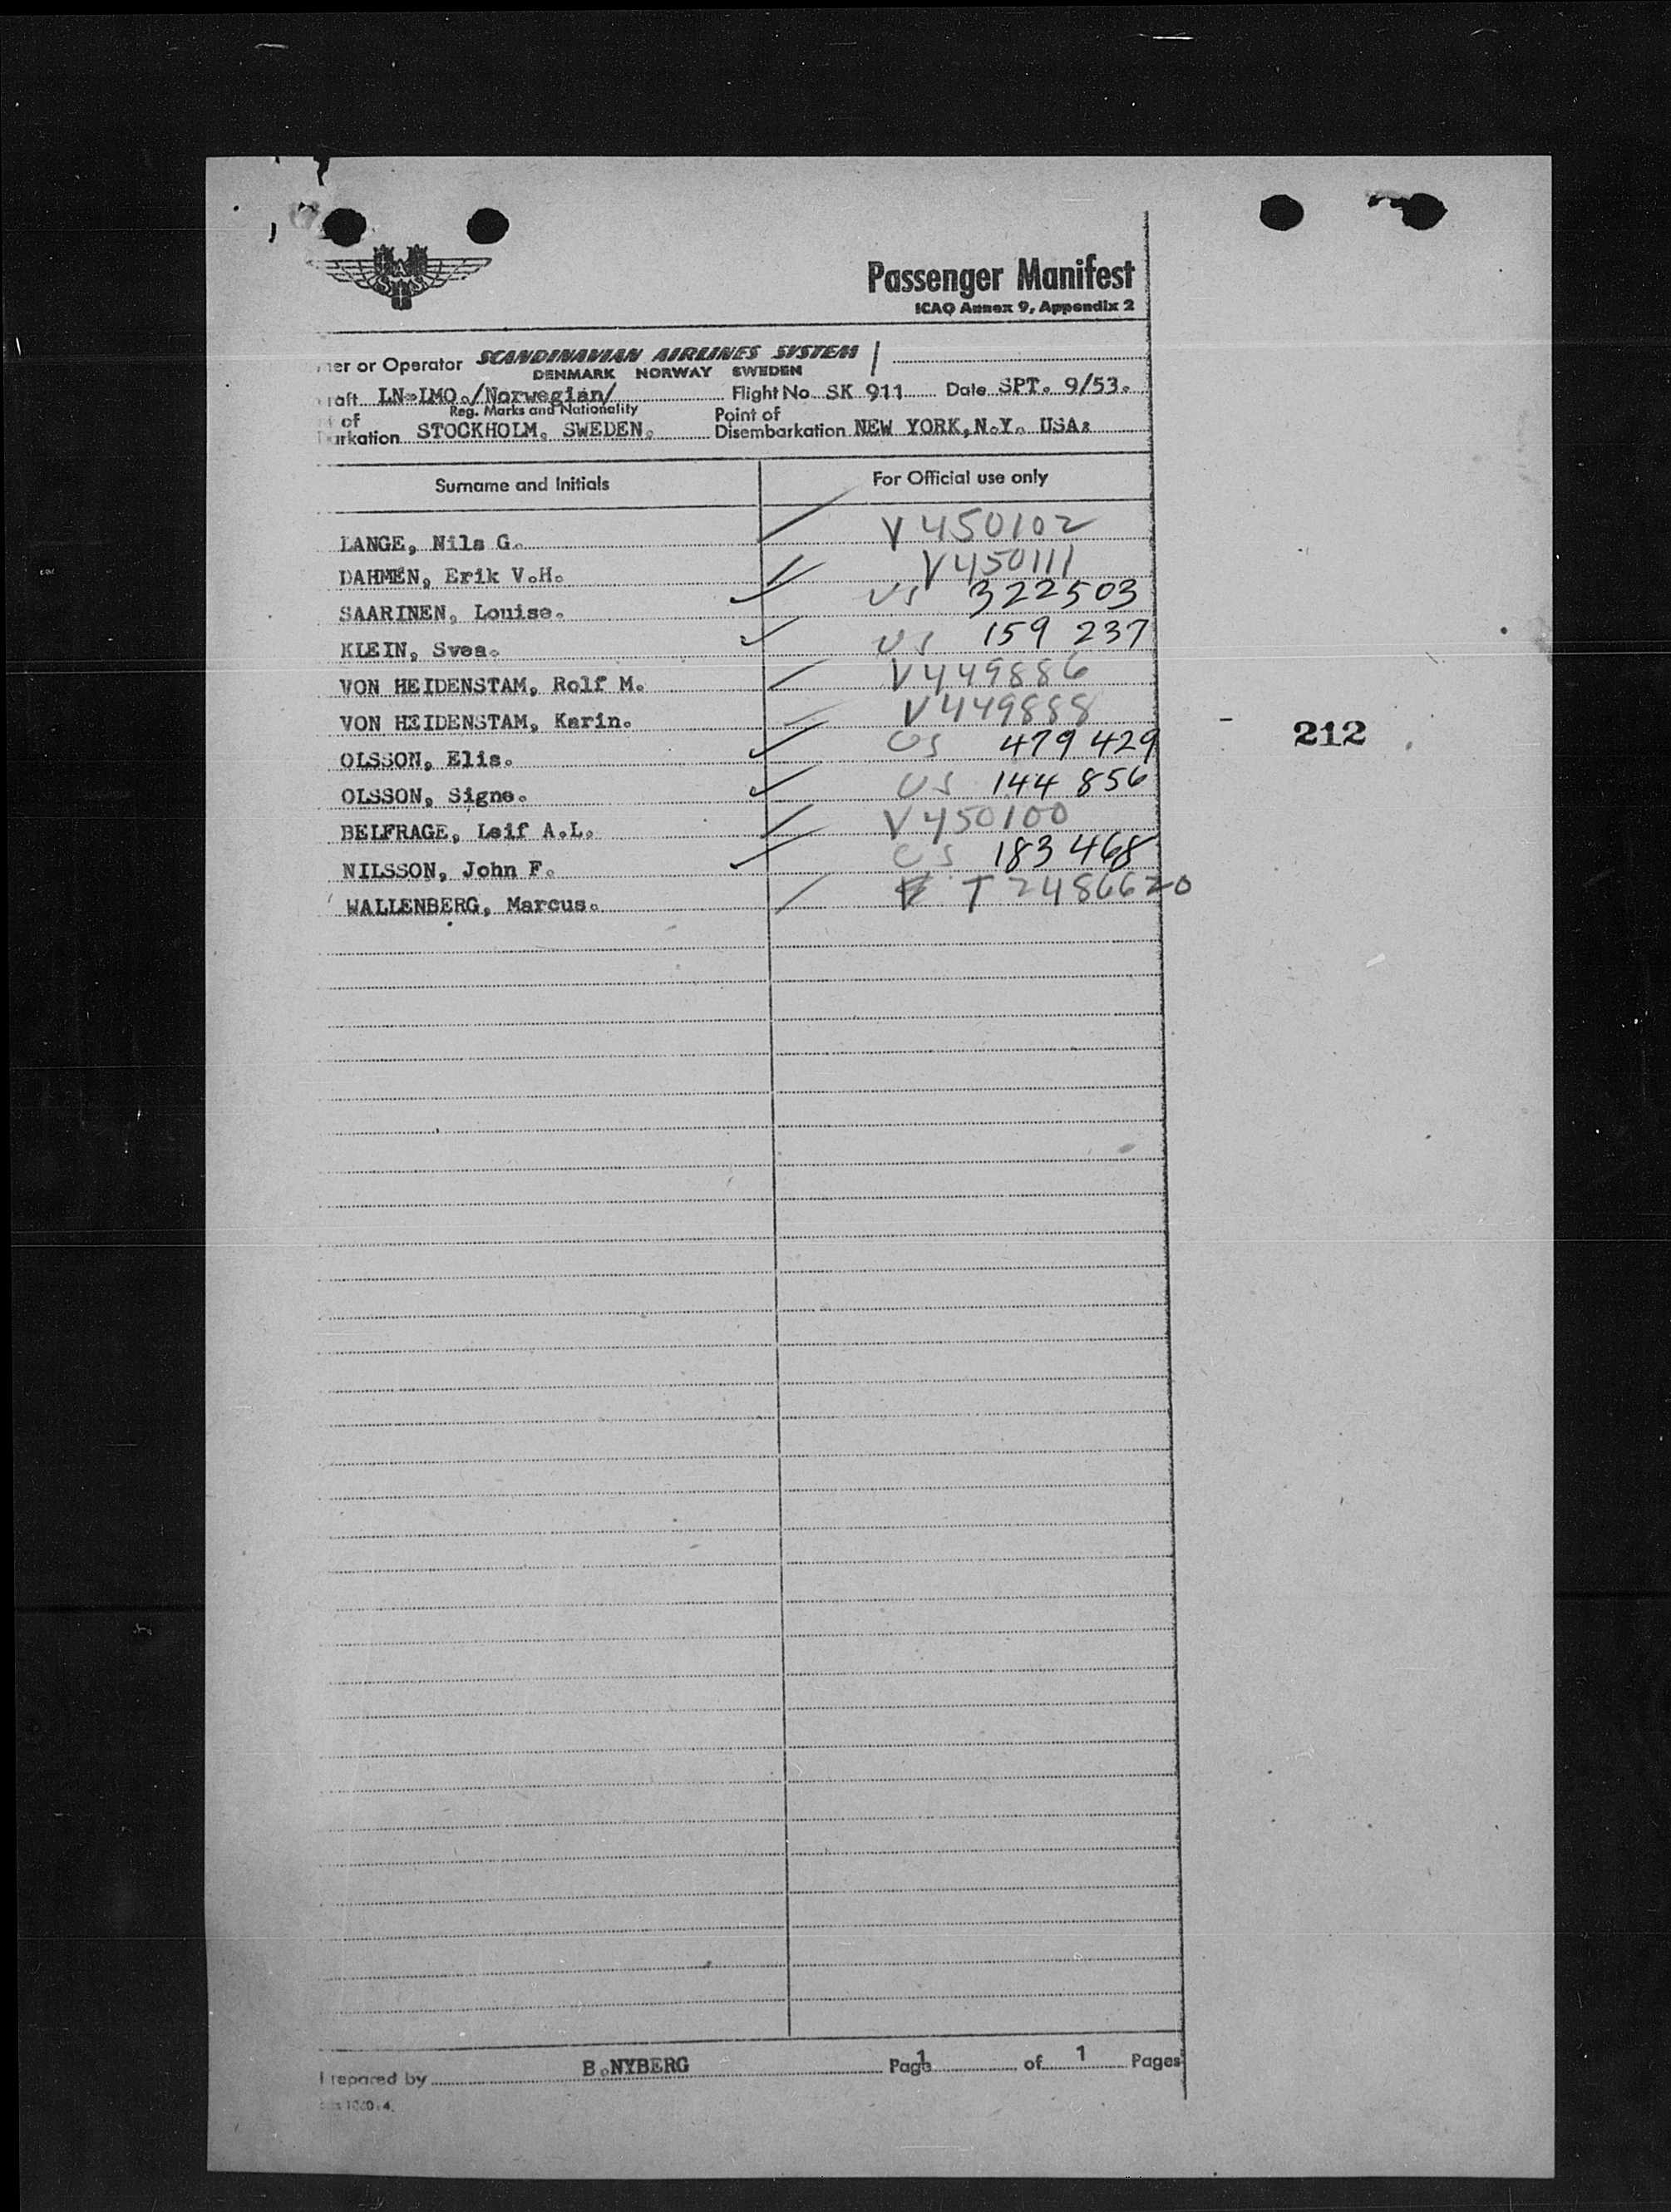 SAS
Passenger Manifest
ICAO Annex 9, Appendix 2
ner or Operator SCANDINAVIAN AIRLINES SYSTEM
DENMARK NORWAY SWEDEN
raft LN-IMO./Norwegian/ Flight No. SK 911 Date SPT. 9/53.
Reg. Marks and Nationality
of Point of
arkation STOCKHOLM. SWEDEN. Disembarkation NEW YORK,N.Y. USA.
Surname and Initials For Official use only
LANGE, Nils G. V 450102
DAHMÉN, Erik V.H. V450111
SAARINEN, Louise. US 322503
KLEIN, Svea. US 159 237
VON HEIDENSTAM, Rolf M. V449886
VON HEIDENSTAM, Karin. V449888
OLSSON, Elis. US 479 429
OLSSON, Signe. US 144 856
BELFRAGE, Leif A.L. V450100
NILSSON, John F. US 183 468
WALLENBERG, Marcus. T 2486620
212
repared by B.NYBERG Page 1 of 1 Pages